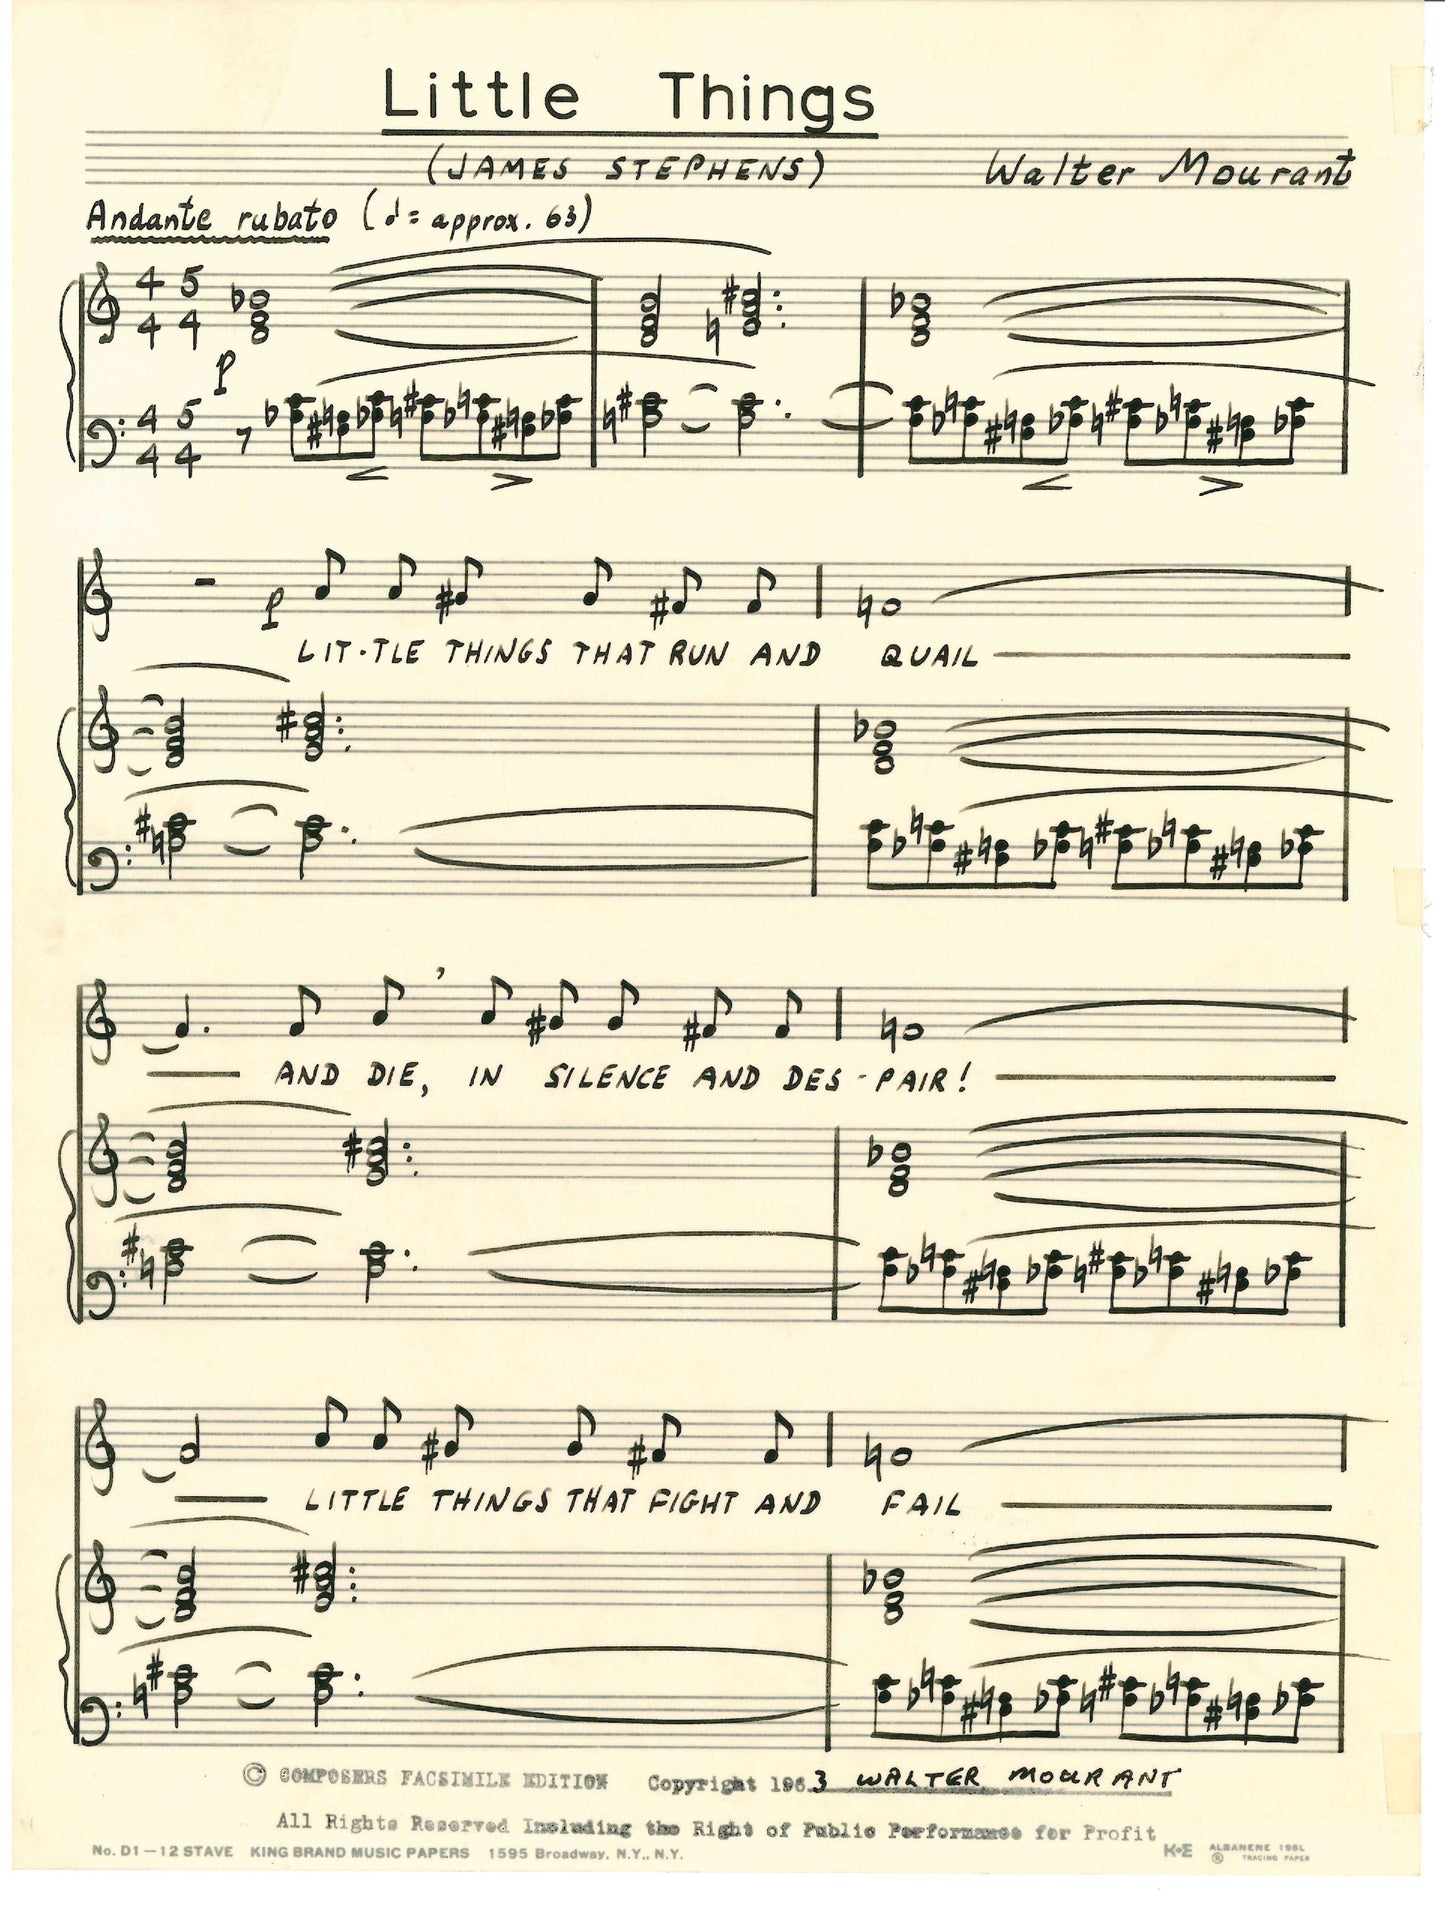 Little Things
(JAMES STEPHENS) Walter Mourant
Andante rubato (♩= approx. 63)
4 5
4 4
p
4 5
4 4
p
LIT-TLE THINGS THAT RUN AND QUAIL
AND DIE, IN SILENCE AND DES-PAIR!
LITTLE THINGS THAT FIGHT AND FAIL
© COMPOSERS FACSIMILE EDITION Copyright 1963 WALTER MOURANT
All Rights Reserved Including the Right of Public Performance for Profit
No. D1—12 STAVE KING BRAND MUSIC PAPERS 1595 Broadway, N.Y., N.Y. K+E ALBANENE 195L
® TRACING PAPER